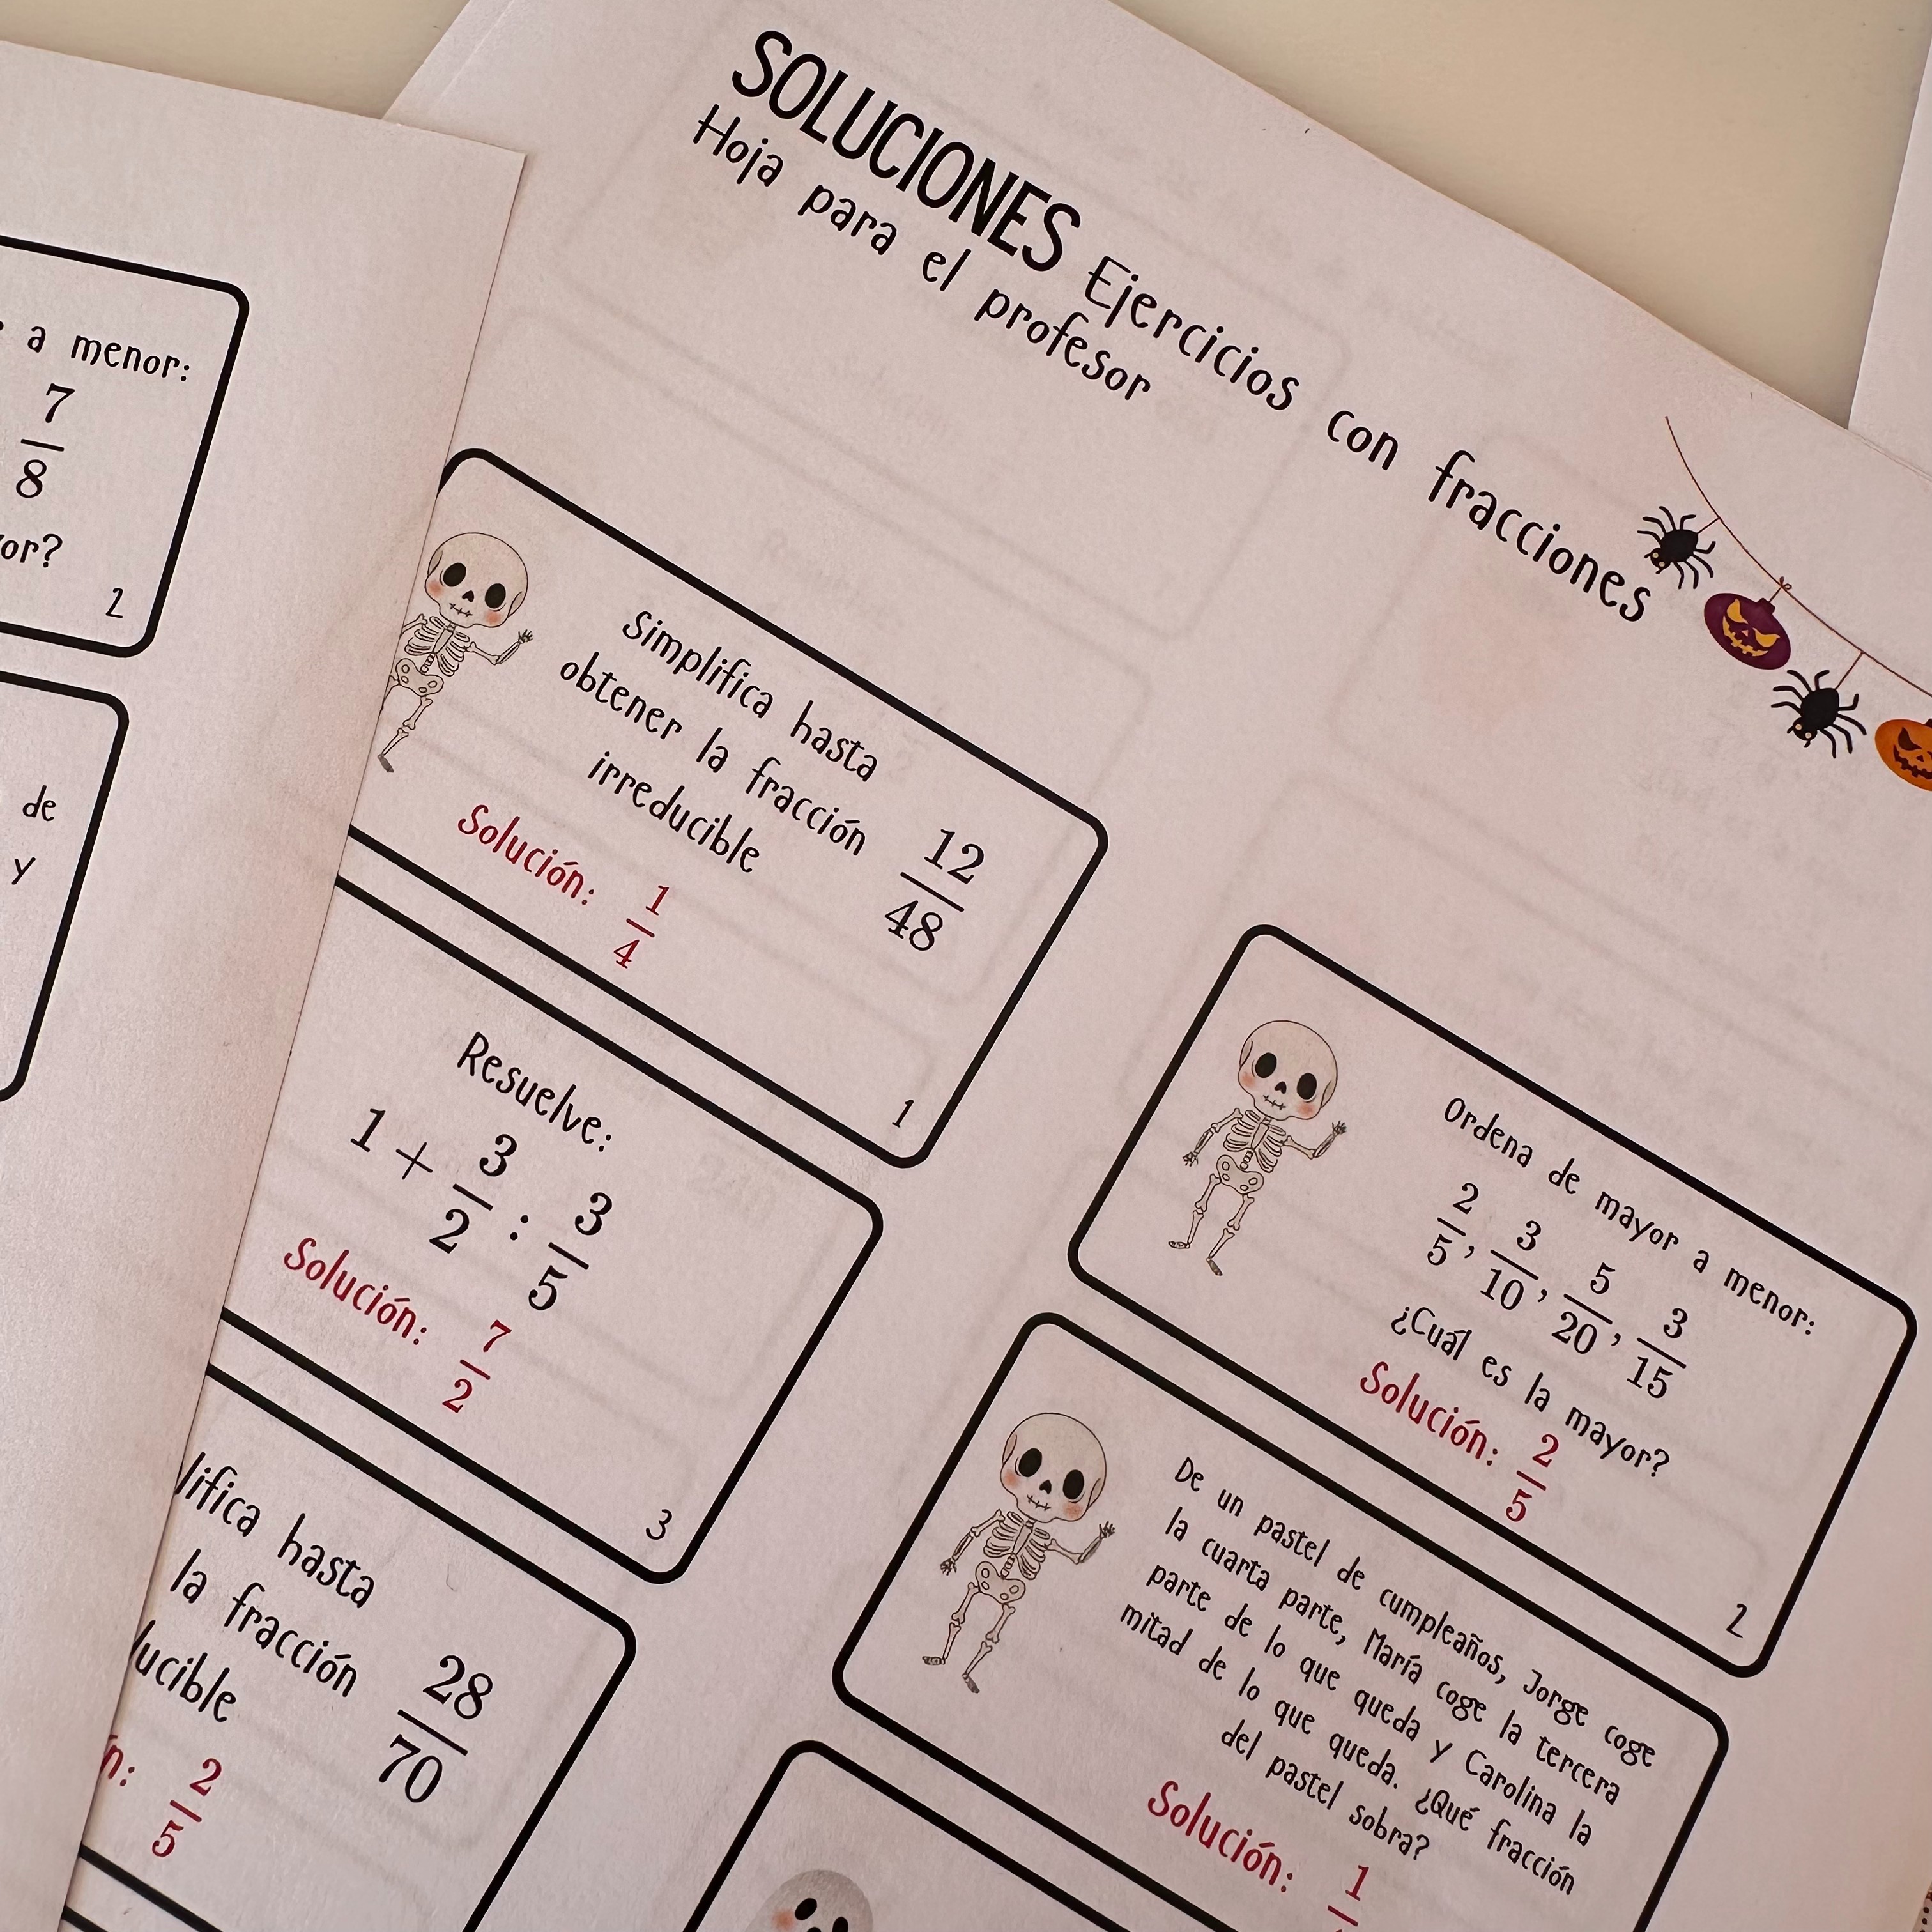 SOLUCIONES Ejercicios con fracciones
Hoja para el profesor
a menor:
7
8
or?
2
de
y
Simplifica hasta
obtener la fracción
irreducible
12
48
Solución: 1
4
1
Ordena de mayor a menor:
2/5, 3/10, 5/20, 3/15
¿Cuál es la mayor?
Solución: 2/5
2
Resuelve:
1 + 3/2 : 3/5
Solución: 7/2
3
De un pastel de cumpleaños, Jorge coge
la cuarta parte, María coge la tercera
parte de lo que queda y Carolina la
mitad de lo que queda. ¿Qué fracción
del pastel sobra?
Solución: 1
lifica hasta
la fracción
ucible
28
70
n: 2/5